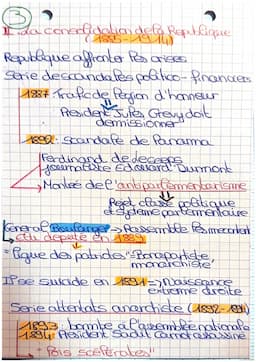 3
II La consolidation de la République
(1885-1914)
République affronter les crises
Série de scandales politico-financiers
1887 Trafic de légion d'honneur
⇓
President Jules Grevy doit
demissionner
1892: scandale de Panama
Ferdinand de Lesseps
journaliste Edouard Drumont
→ Montée de l'antiparlementarisme
⇓
Rejet classe politique
et système parlementaire
General Boulanger → Rassemble les mecontent
→ élu deputé en 1889
"ligue des patriotes" Bonapartiste
monarchiste
Il se suicide en 1891 → Naissance
extreme droite
Serie attentats anarchiste (1892-1894)
1893 bombe à l'assemblée nationale
1894 President Sadi Carnot assassiné
→ "lois scélérates"